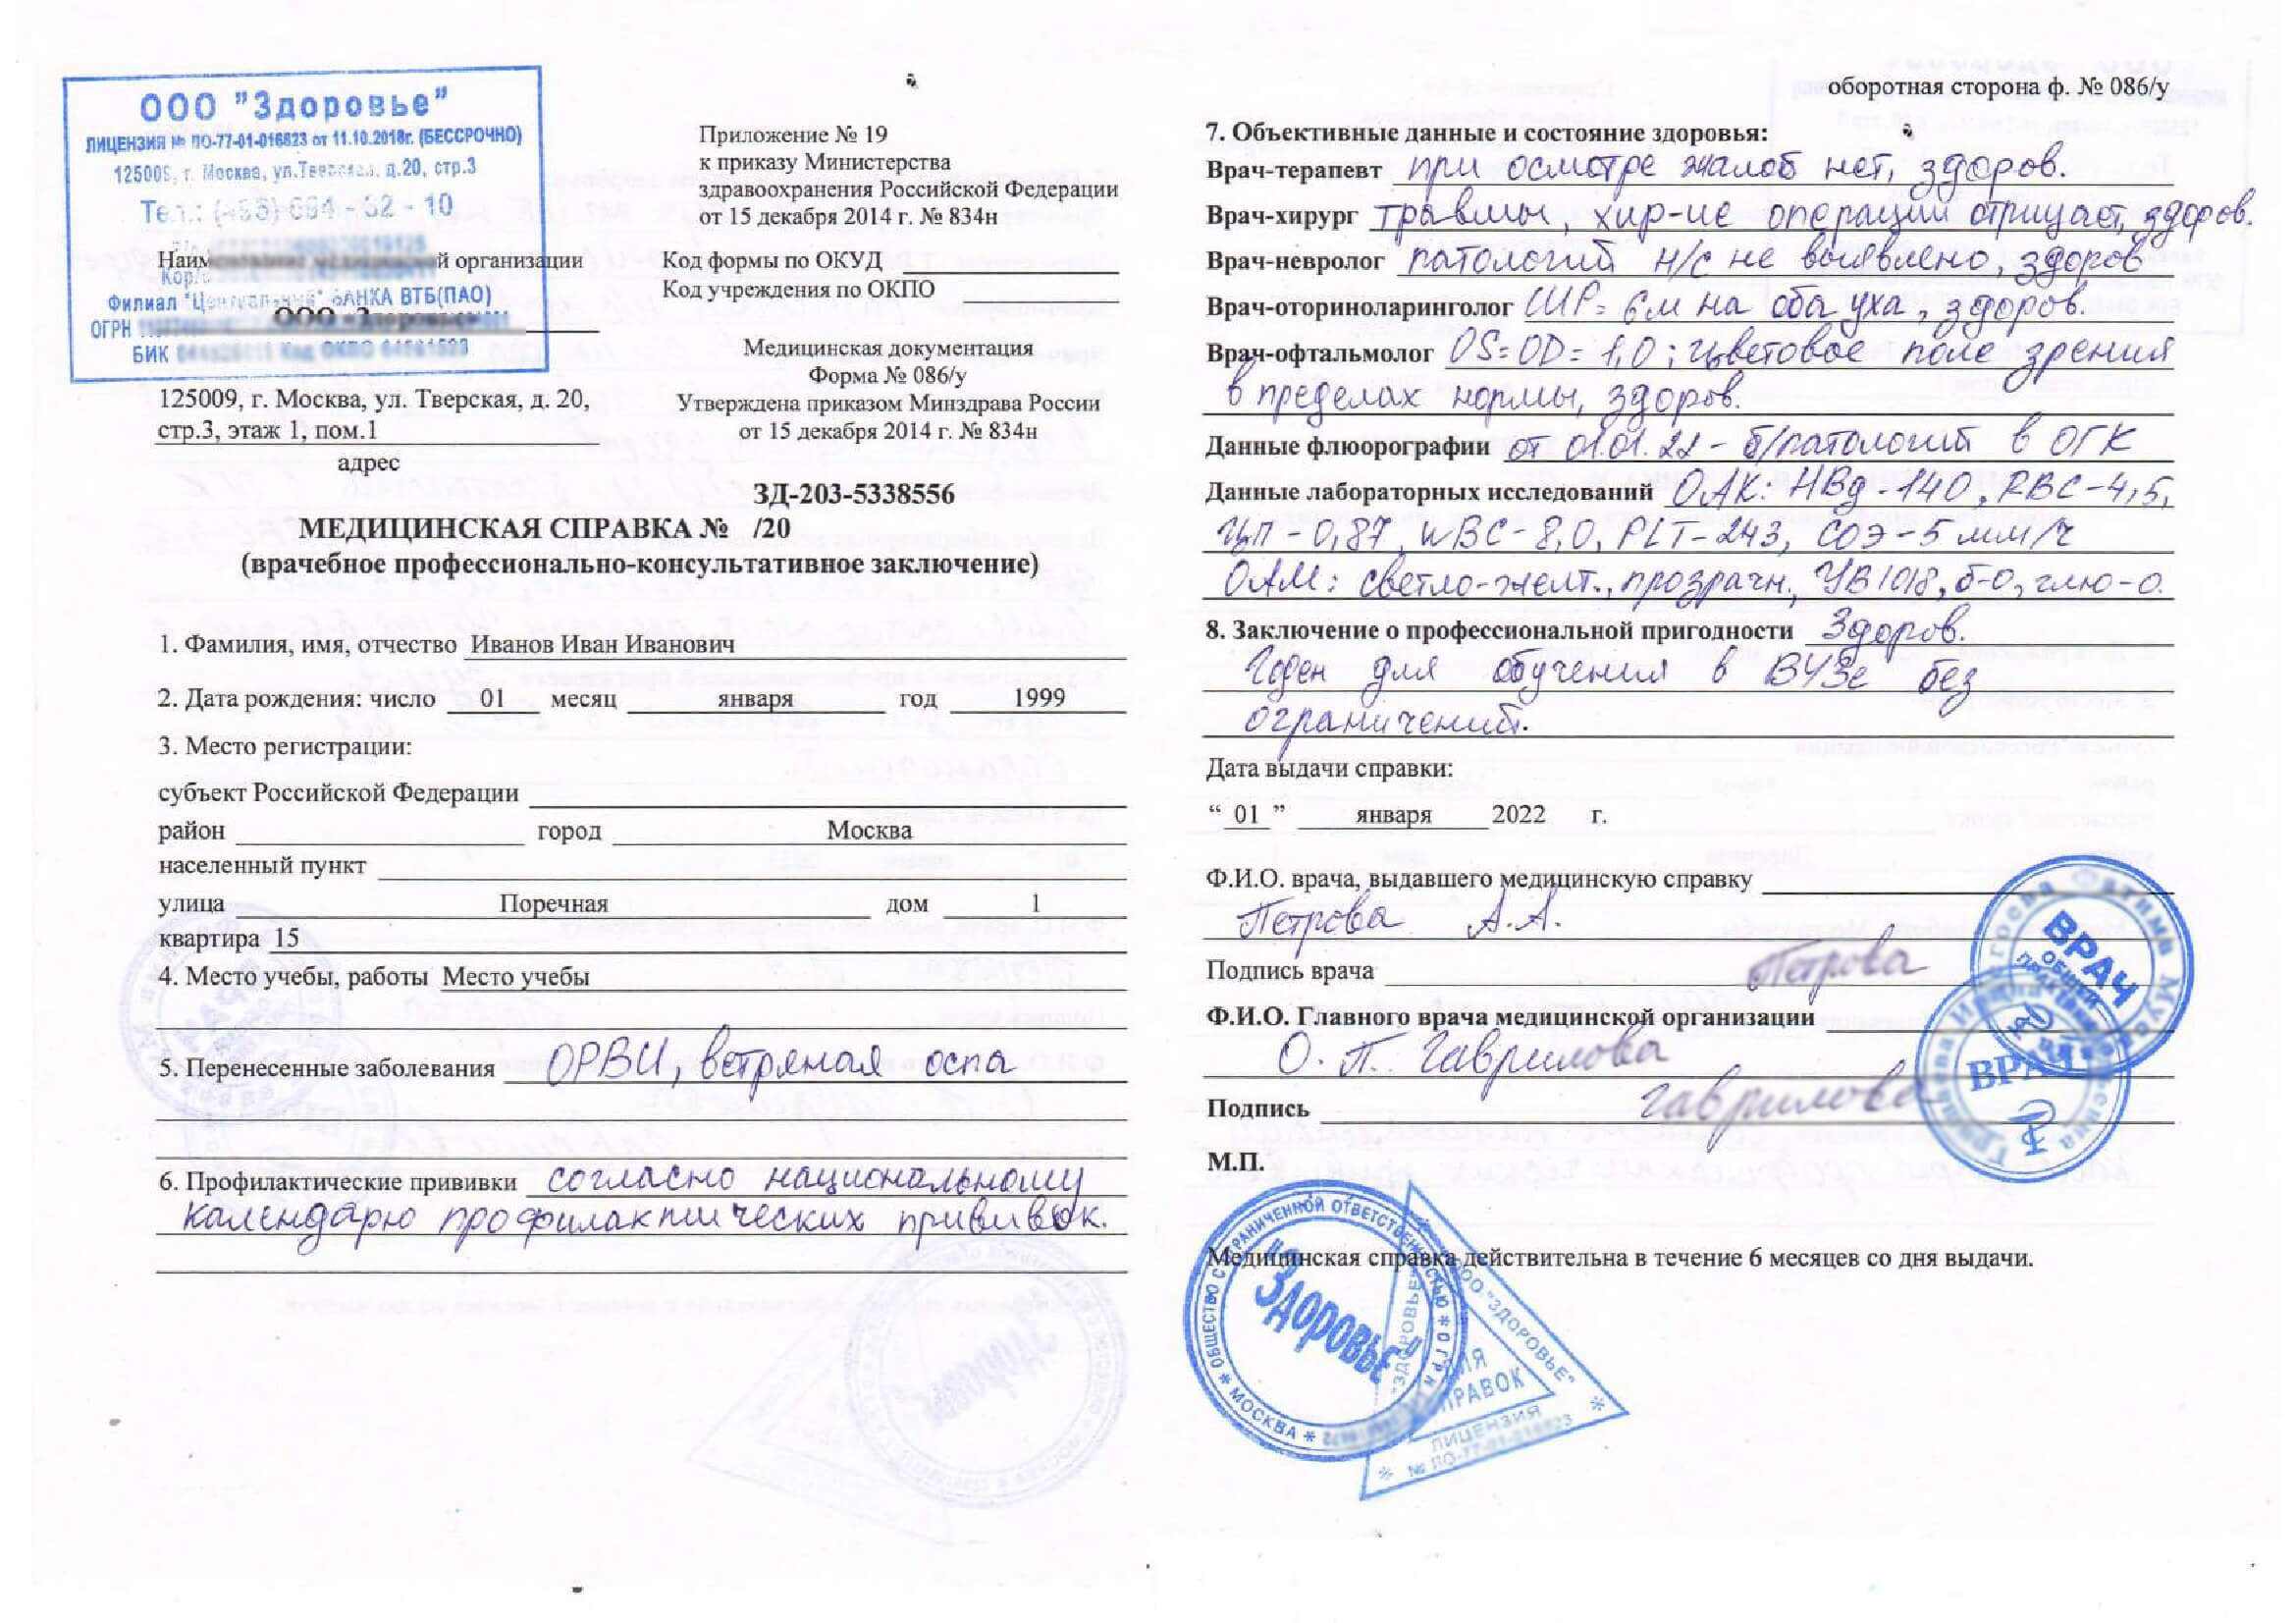 ООО "Здоровье"
ЛИЦЕНЗИЯ № ПО-77-01-016823 от 11.10.2018г. (БЕССРОЧНО)
125009, г. Москва, ул.Тверская, д.20, стр.3
Тел.: (495) 694-62-10
Наименование медицинской организации
Кор/
Филиал "Центральный" БАНКА ВТБ(ПАО)
ООО «Здоровье»
ОГРН
БИК Код ОКПО
125009, г. Москва, ул. Тверская, д. 20,
стр.3, этаж 1, пом.1
адрес
Приложение № 19
к приказу Министерства
здравоохранения Российской Федерации
от 15 декабря 2014 г. № 834н
Код формы по ОКУД
Код учреждения по ОКПО
Медицинская документация
Форма № 086/у
Утверждена приказом Минздрава России
от 15 декабря 2014 г. № 834н
ЗД-203-5338556
МЕДИЦИНСКАЯ СПРАВКА № /20
(врачебное профессионально-консультативное заключение)
1. Фамилия, имя, отчество Иванов Иван Иванович
2. Дата рождения: число 01 месяц января год 1999
3. Место регистрации:
субъект Российской Федерации
район город Москва
населенный пункт
улица Поречная дом 1
квартира 15
4. Место учебы, работы Место учебы
5. Перенесенные заболевания ОРВИ, ветряная оспа
6. Профилактические прививки согласно национальному
календарю профилактических прививок.
оборотная сторона ф. № 086/у
7. Объективные данные и состояние здоровья:
Врач-терапевт при осмотре жалоб нет, здоров.
Врач-хирург травмы, хир-ие операции отрицает, здоров.
Врач-невролог патологий н/с не выявлено, здоров
Врач-оториноларинголог ШР=6м на оба уха, здоров.
Врач-офтальмолог OS=OD=1,0; цветовое поле зрения
в пределах нормы, здоров.
Данные флюорографии от 01.01.22 - б/патологий в ОГК
Данные лабораторных исследований ОАК: HBg-140, RBC-4,5,
ЦП-0,87, WBC-8,0, PLT-243, СОЭ-5 мм/ч
ОАМ: светло-желт., прозрачн., УВ1018, б-0, глю-0.
8. Заключение о профессиональной пригодности Здоров.
Годен для обучения в ВУЗе без
ограничений.
Дата выдачи справки:
“ 01 ” января 2022 г.
Ф.И.О. врача, выдавшего медицинскую справку
Петрова А.А.
Подпись врача Петрова
Ф.И.О. Главного врача медицинской организации
О.П. Гаврилова
Подпись Гаврилова
ВРАЧ
ОБЩЕЙ
ВРАЧ
М.П.
Медицинская справка действительна в течение 6 месяцев со дня выдачи.
ОБЩЕСТВО С ОГРАНИЧЕННОЙ ОТВЕТСТВЕННОСТЬЮ * ОГРН
"Здоровье"
* МОСКВА *
ООО "ЗДОРОВЬЕ"
"ЗДОРОВЬЕ"
ДЛЯ
СПРАВОК
ЛИЦЕНЗИЯ
№ ПО-77-01-016823